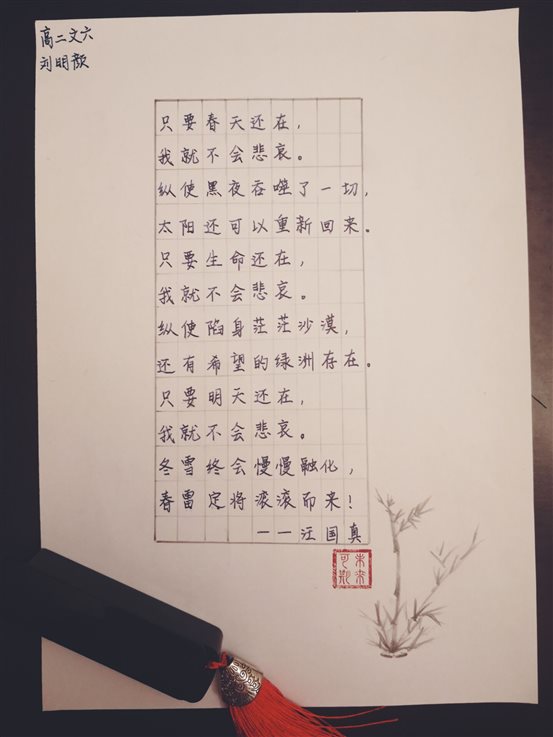 高二文六
刘明颜
只要春天还在，
我就不会悲哀。
纵使黑夜吞噬了一切，
太阳还可以重新回来。
只要生命还在，
我就不会悲哀。
纵使陷身茫茫沙漠，
还有希望的绿洲存在。
只要明天还在，
我就不会悲哀。
冬雪终会慢慢融化，
春雷定将滚滚而来！
——汪国真
未来可期